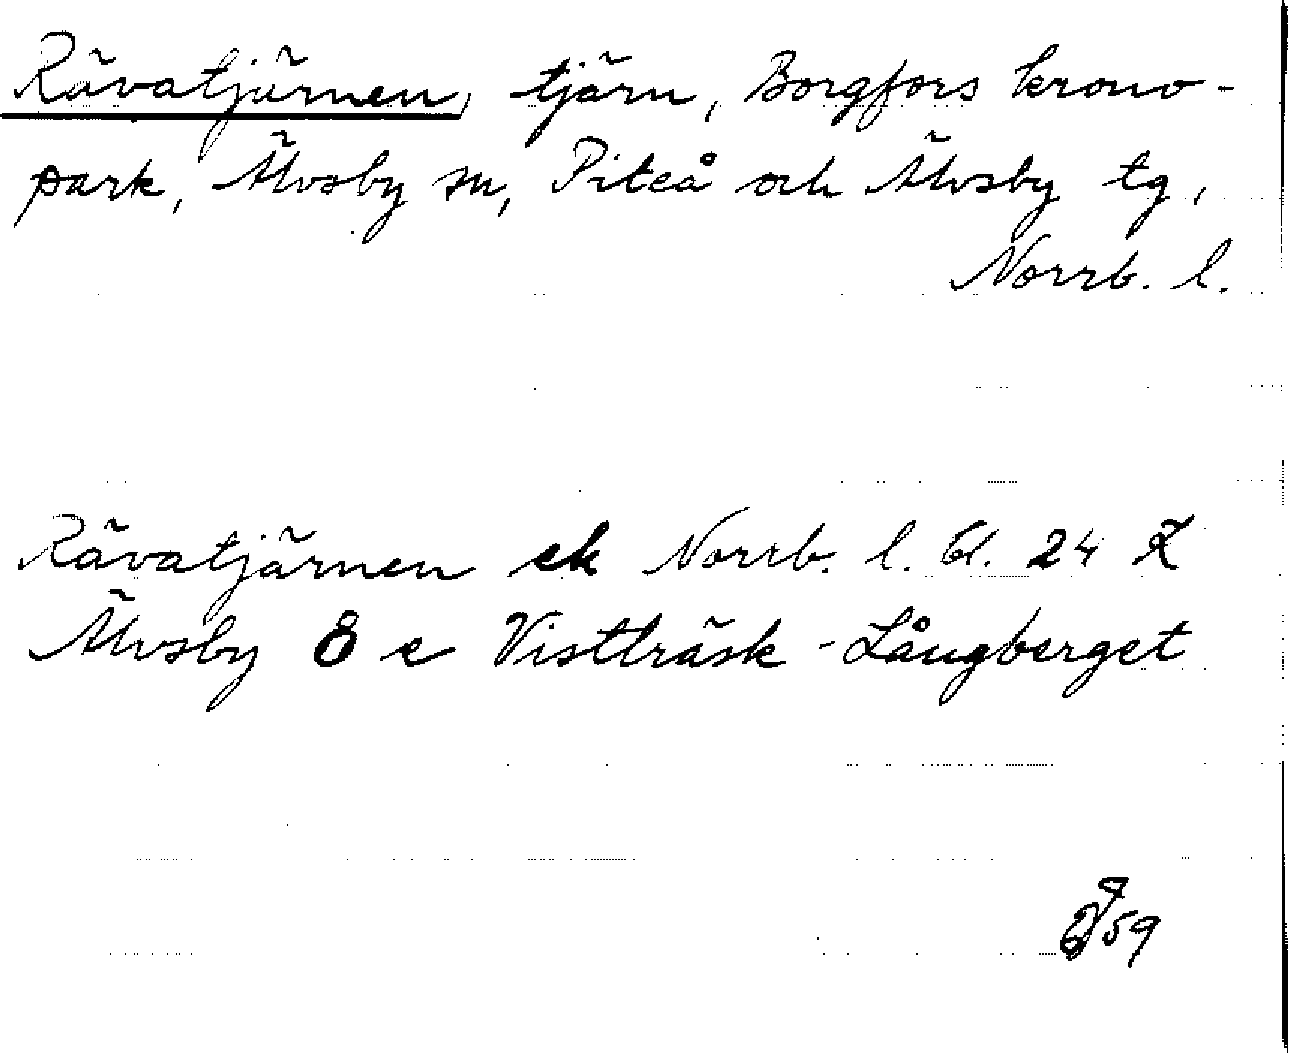 Rävatjärnen, tjärn, Borgfors krono-
park, Älvsby sn, Piteå och Älvsby tg,
Norrb. l.
Rävatjärnen ek Norrb. l. bl. 24
Älvsby 8 e Vistträsk - Långberget
59